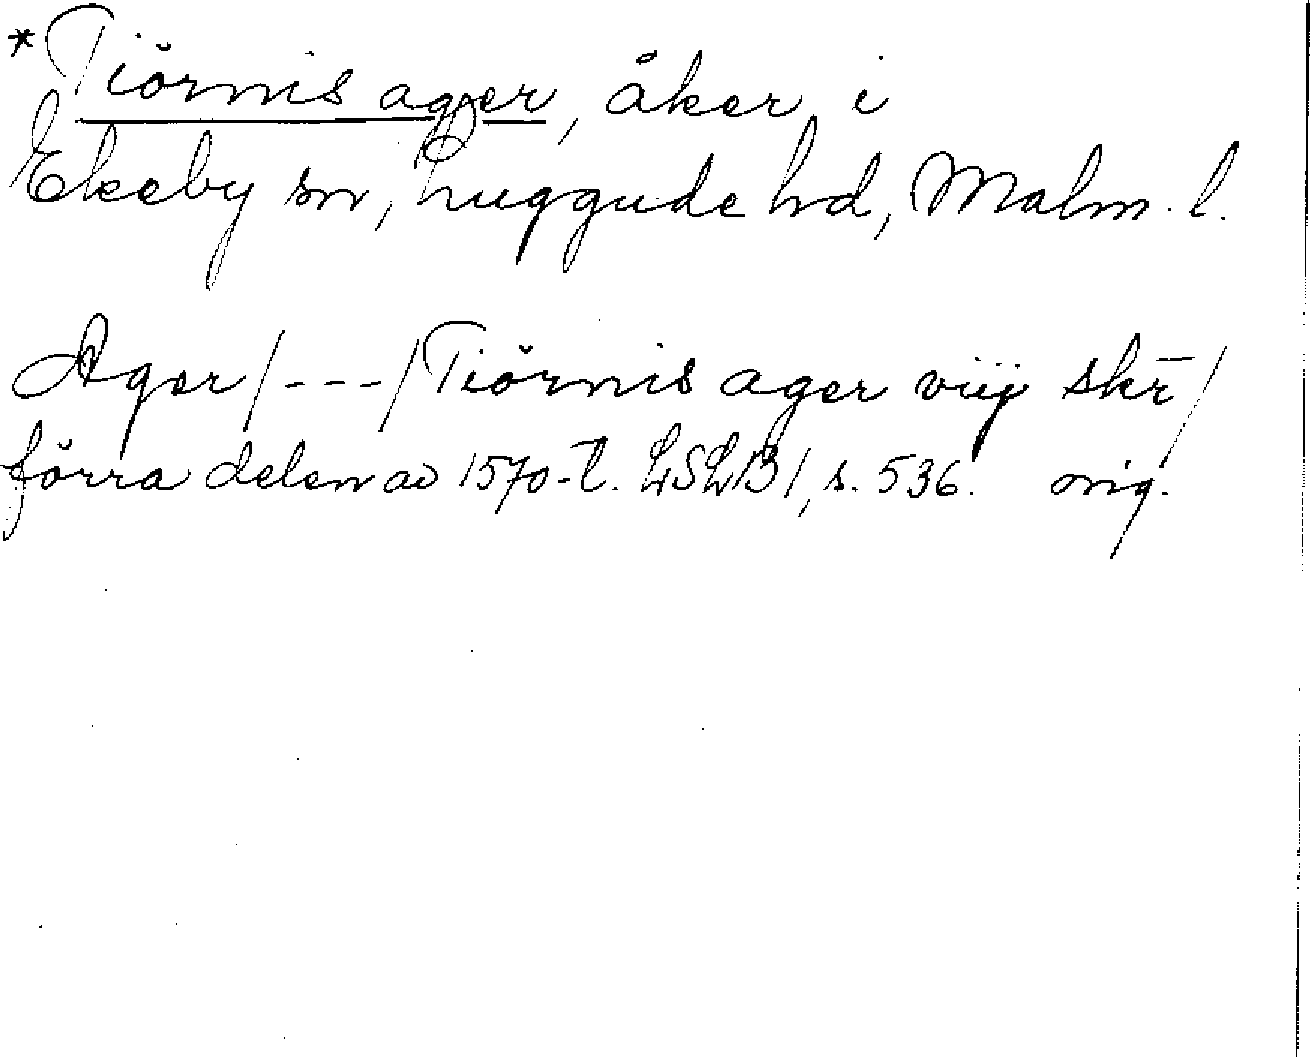 *Tiörnis ager, åker i
Ekeby sn, Luggude hd, Malm. l.
Ager/---/Tiörnis ager viij skr̄/
förra delen av 1570-t. LSLB1, s. 536. orig.